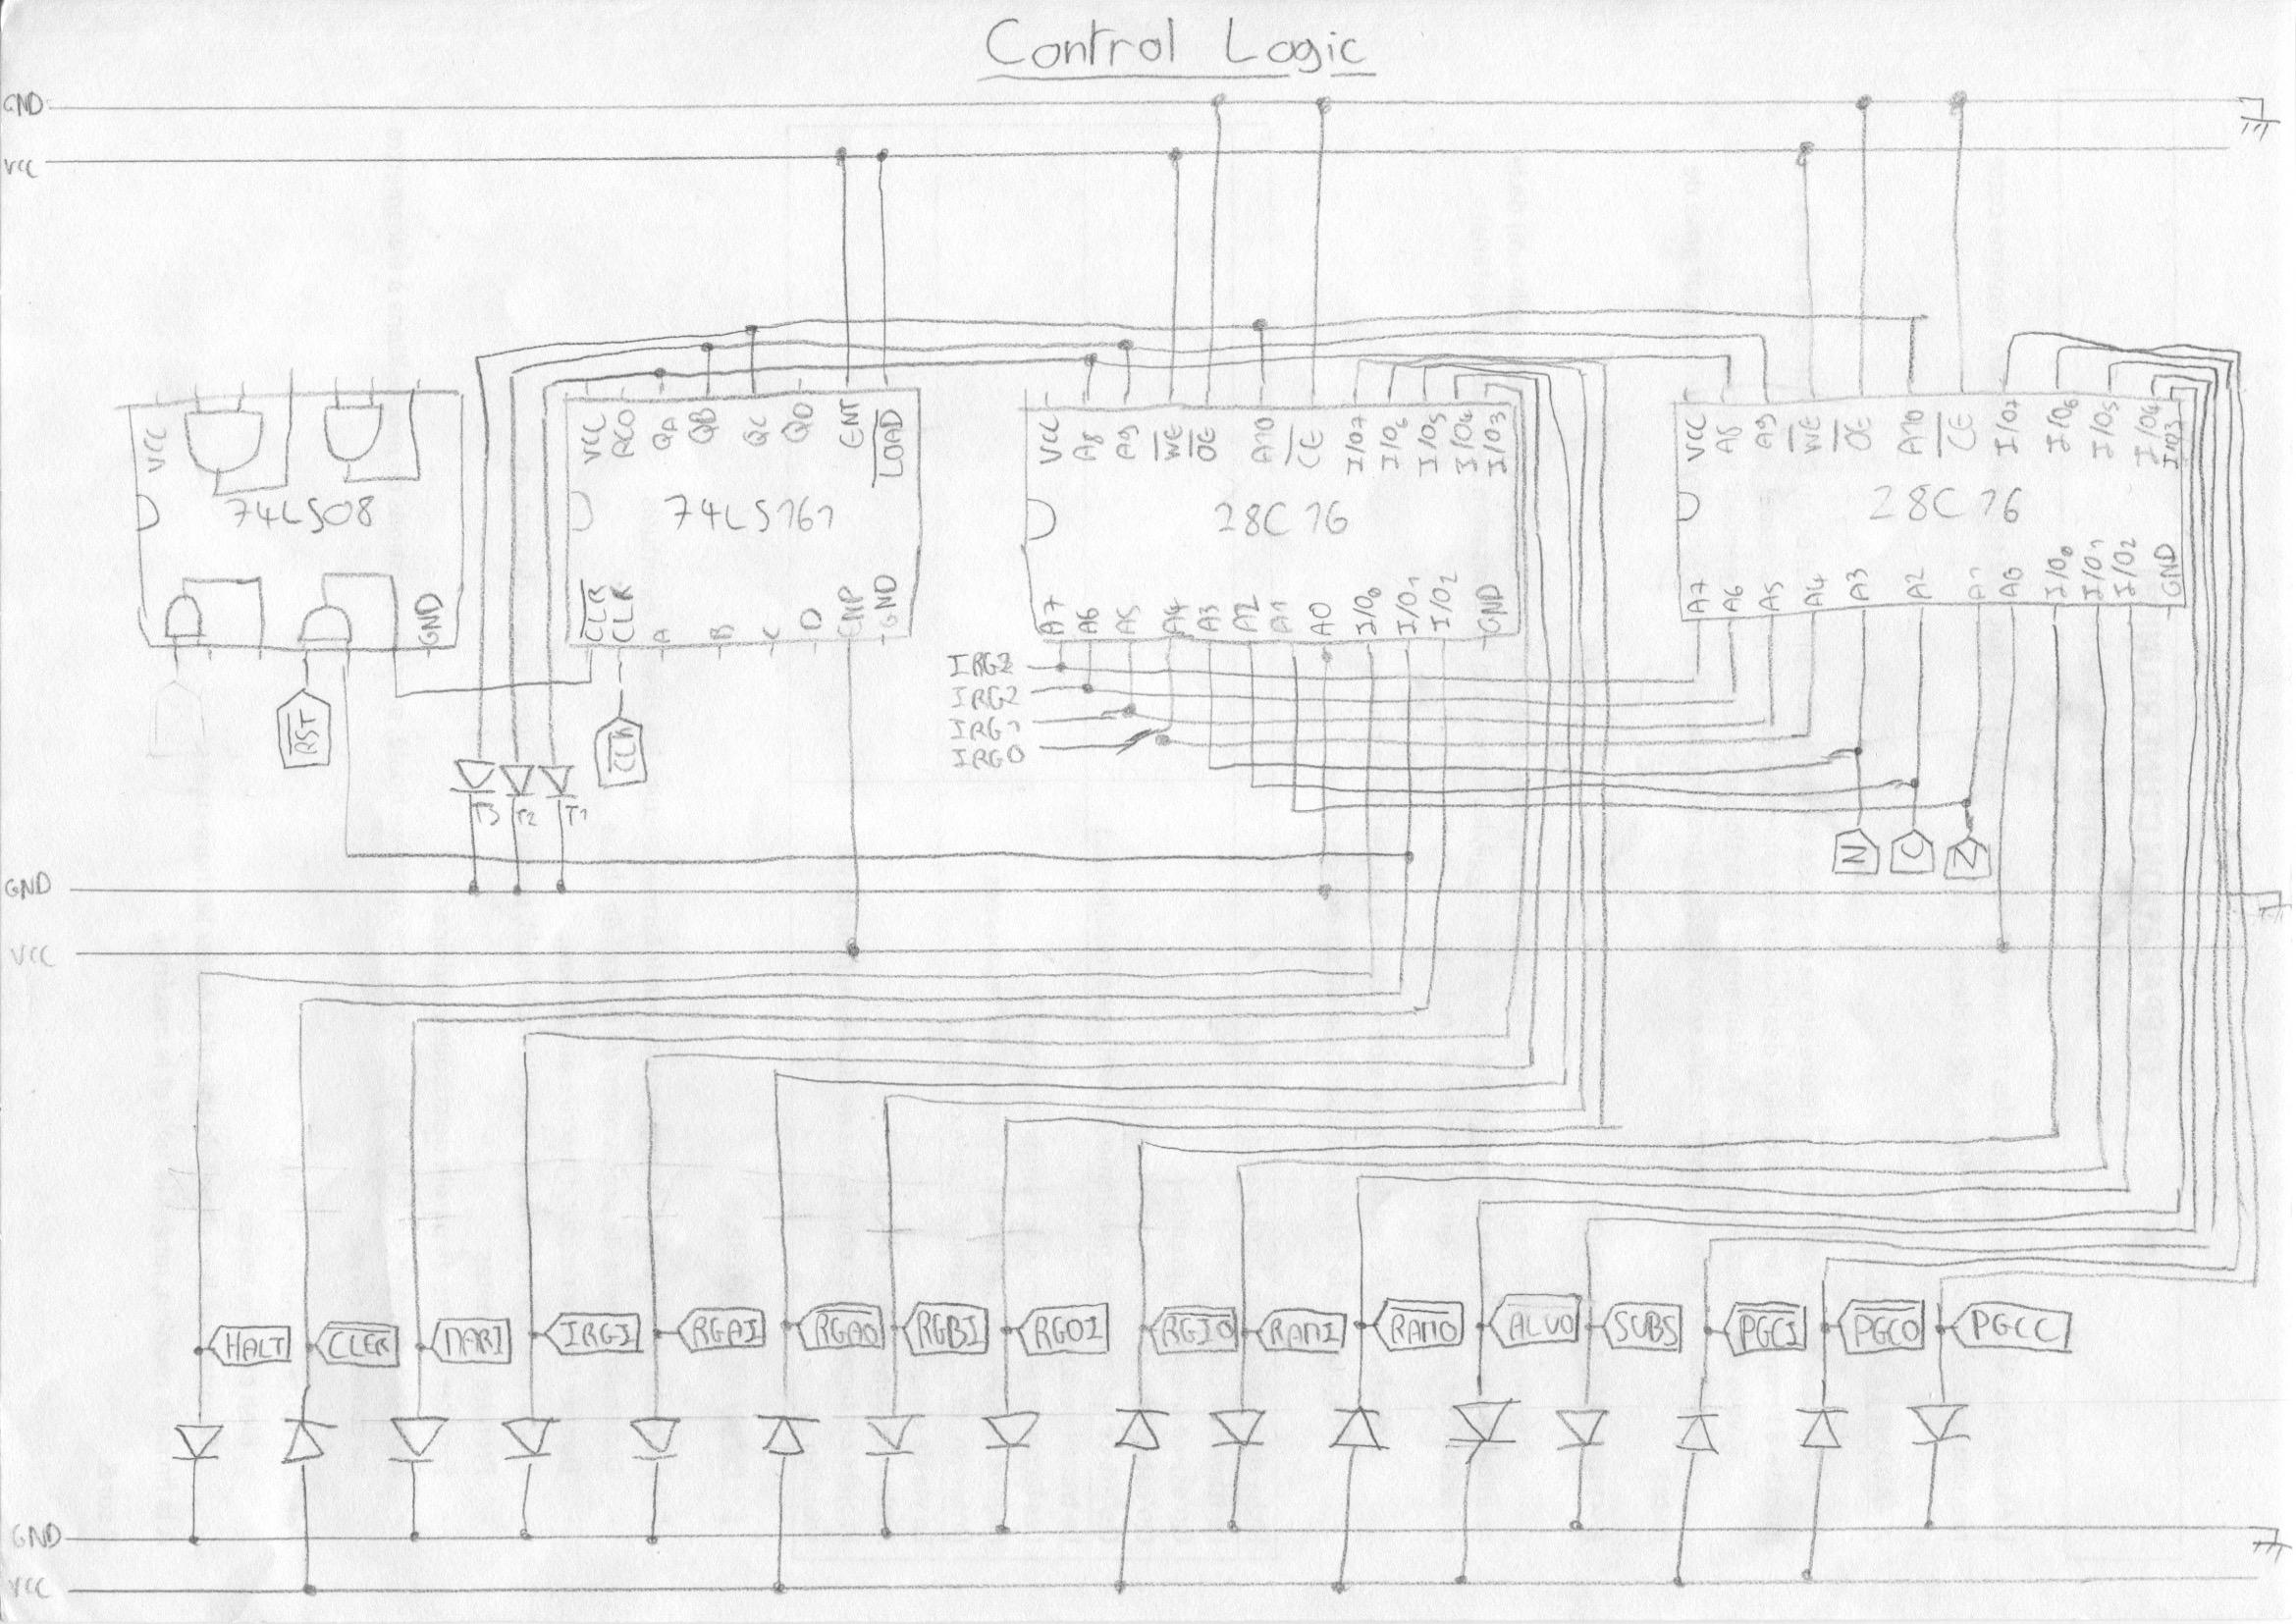 Control Logic
GND
VCC
VCC
VCC RCO QA QB QC QD ENT LOAD
VCC A8 A9 WE OE A10 CE I/O7 I/O6 I/O5 I/O4 I/O3
VCC A8 A9 WE OE A10 CE I/O7 I/O6 I/O5 I/O4 I/O3
74LS08
74LS161
28C16
28C16
GND
CLR CLK A B C D ENP GND
A7 A6 A5 A4 A3 A2 A1 A0 I/O0 I/O1 I/O2 GND
A7 A6 A5 A4 A3 A2 A1 A0 I/O0 I/O1 I/O2 GND
IRG2
IRG2
IRG1
IRG0
RST
CLK
T3 T2 T1
N C Z
GND
VCC
HALT CLER MARI IRGI RGAI RGAO RGBI RGOI RGIO RAMI RAMO ALUO SUBS PGCI PGCO PGCC
GND
VCC